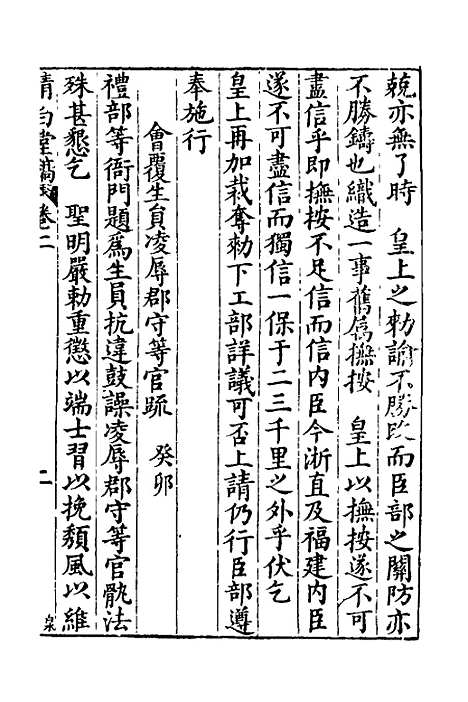 兢亦無了時　皇上之勅諭不勝改而臣部之關防亦
不勝鑄也織造一事舊屬撫按　皇上以撫按遂不可
盡信乎即撫按不足信而信內臣今浙直及福建內臣
遂不可盡信而獨信一保于二三千里之外乎伏乞
皇上再加裁奪勅下工部詳議可否上請仍行臣部遵
奉施行
會覆生員凌辱郡守等官疏　癸卯
禮部等衙門題為生員抗違鼓譟凌辱郡守等官骩法
殊甚懇乞　聖明嚴勅重懲以端士習以挽頹風以維
清白堂稿　卷二　二